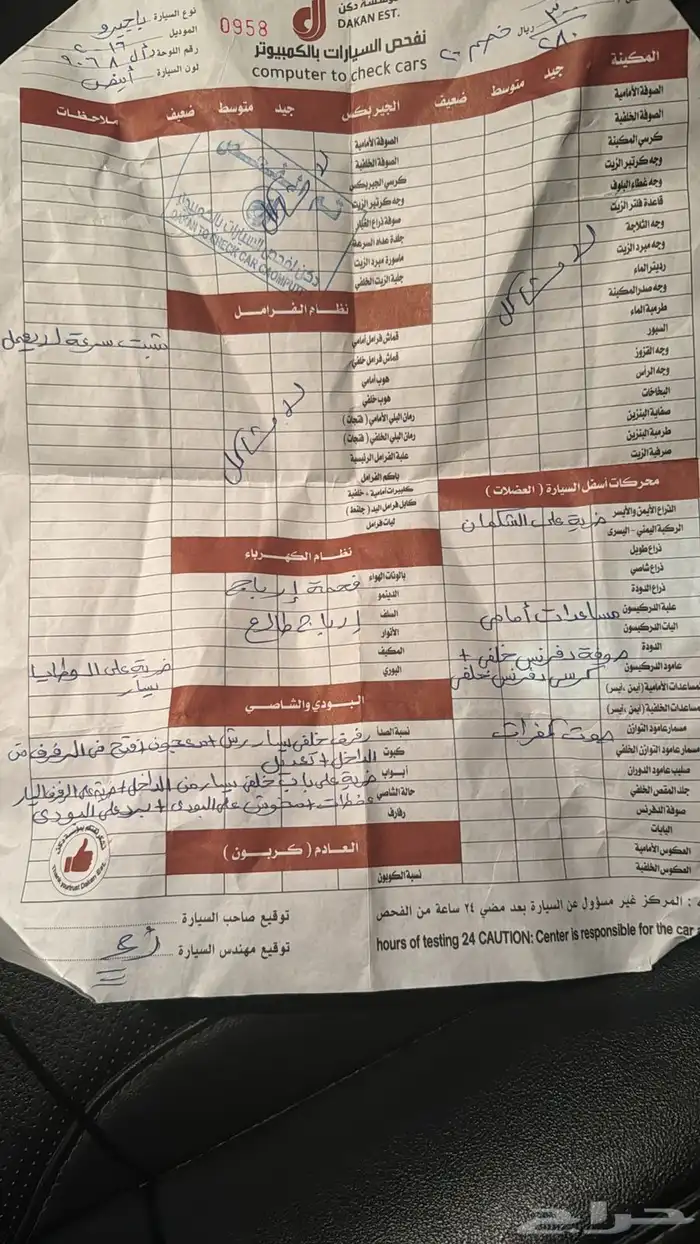 مؤسسة دكن
DAKAN EST.
نفحص السيارات بالكمبيوتر
computer to check cars
0958
نوع السيارة باجيرو
الموديل ٢٠١٦
رقم اللوحة
لون السيارة أبيض
ريال
خصم
٢٨٠
المكينة جيد متوسط ضعيف
الصوفة الأمامية
الصوفة الخلفية
كرسي المكينة
وجه كرتير الزيت
وجه غطاء البلوف
قاعدة فلتر الزيت
وجه الثلاجة
وجه مبرد الزيت
رديتر الماء
وجه صدر المكينة
طرمبة الماء
السيور
وجه القزوز
وجه الرأس
البخاخات
صفاية البنزين
طرمبة البنزين
صرفية الزيت
لا مشاكل
محركات أسفل السيارة ( العضلات )
الذراع الأيمن والأيسر
الركبة اليمنى - اليسرى
ضربة على الشكمان
ذراع طويل
ذراع شاصي
ذراع الدودة
علبة الدركيسون
مساعدات أمامي
اليات الدركيسون
الدودة
صوفة دفرنس خلفي +
عامود الدركيسون
كرسي دفرنس خلفي
مساعدات الأمامية (أيمن ،أيسر)
مساعدات الخلفية (أيمن ،أيسر)
مسمار عامود التوازن
صوت كفرات
مسمار عامود التوازن الخلفي
صليب عامود الدوران
جلد المقص الخلفي
صوفة الدفرنس
اليايات
العكوس الأمامية
العكوس الخلفية
الجيربكس جيد متوسط ضعيف ملاحظات
الصوفة الأمامية
الصوفة الخلفية
كرسي الجيربكس
وجه كرتير الزيت
صوفة ذراع الغيار
جلدة عداد السرعة
ماسورة مبرد الزيت
جلبة الزيت الخلفي
لا مشاكل
دكن لفحص السيارات بالكمبيوتر
DAKAN TO CHECK CAR COMPUTER
نظام الفرامل
قماش فرامل أمامي
قماش فرامل خلفي
هوب أمامي
هوب خلفي
رمان البلي الأمامي ( فتحات )
رمان البلي الخلفي ( فتحات )
علبة الفرامل الرئيسية
باكم الفرامل
كليبرات أمامية - خلفية
كابل فرامل اليد ( جلنط )
ليات فرامل
لا مشاكل
مثبت سرعة لا يعمل
نظام الكهرباء
بالونات الهواء
الدينمو
السلف
الأنوار
المكيف
البوري
قحمة إرباج
إرباج طالع
ضربة على
يسار
البودي والشاصي
نسبة الصدأ
كبوت
أبواب
حالة الشاصي
رفارف
رفرف خلفي يسار رش + معجون + فتح في الرفرف من
الداخل + تعديل
ضربة على باب خلفي يسار من الداخل
العادم ( كربون )
نسبة الكربون
شكراً لثقتكم بمؤسسة دكن
توقيع صاحب السيارة
توقيع مهندس السيارة
: المركز غير مسؤول عن السيارة بعد مضي ٢٤ ساعة من الفحص
hours of testing 24 CAUTION: Center is responsible for the car
حراج